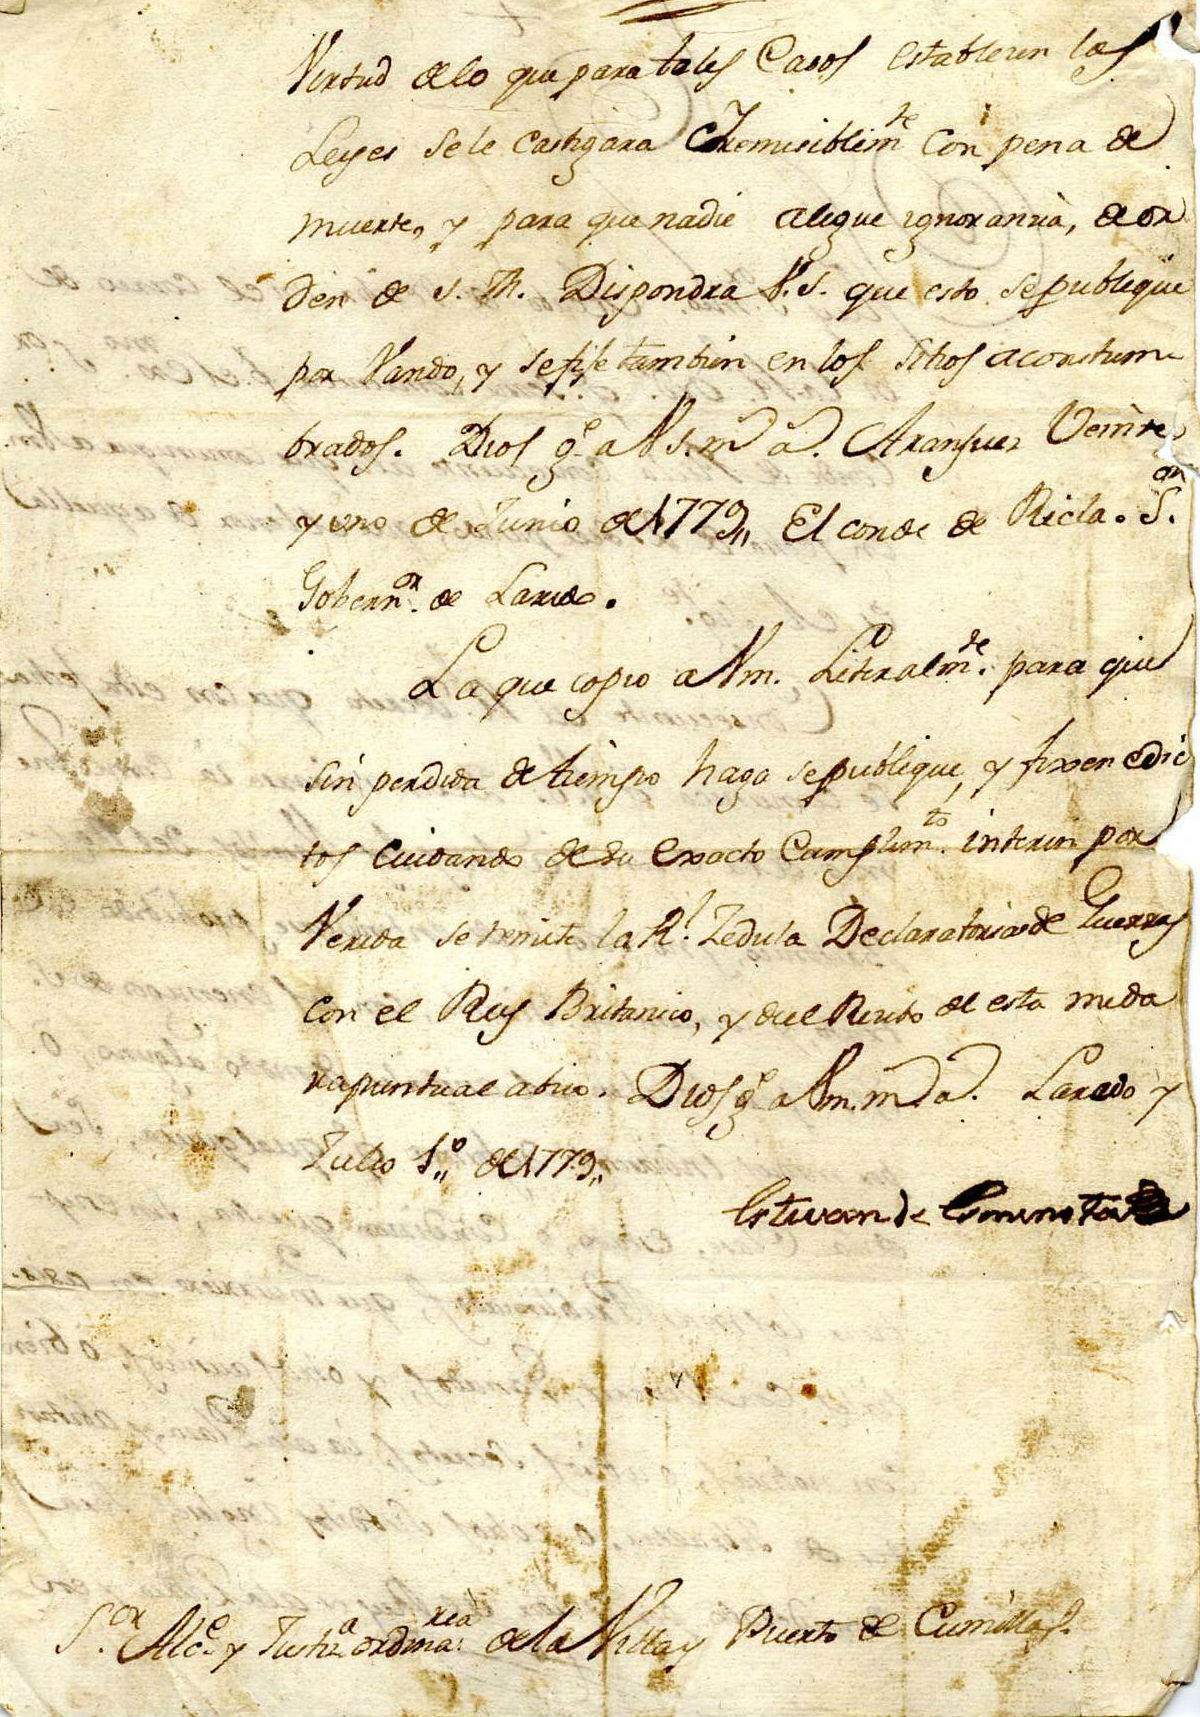 Virtud de lo que para tales Casos establecen las
Leyes se le castigara Yrremisiblem.te Con pena de
muerte, y para que nadie alegue ignorancia, de or
den de S. M. Dispondra V.S. que esto se publique
por Vando, y se fije tambien en los sitios acostum
brados. Dios g.e a V.S. m.s a.s Aranjuez Veinte
y uno de Junio de 1779,, El conde de Ricla. S.or
Gobern.or de Laredo.
La que copio a Vm. Literalm.te para que
sin perdida de tiempo haga se publique, y fixen edic
tos cuidando de su exacto Cumplim.to interin por
Vereda se remite la R.l Zedula Declaratoria de Guerra
con el Rey Britanico, y del Recibo de esta me da
ra puntual abiso. Dios g.e a Vm. m.s a.s Laredo y
Julio 1.o de 1779,,
Estevan de
S.or Alc.e y Justiz.a ordina.ria de la Villa y Puerto de Comillas.